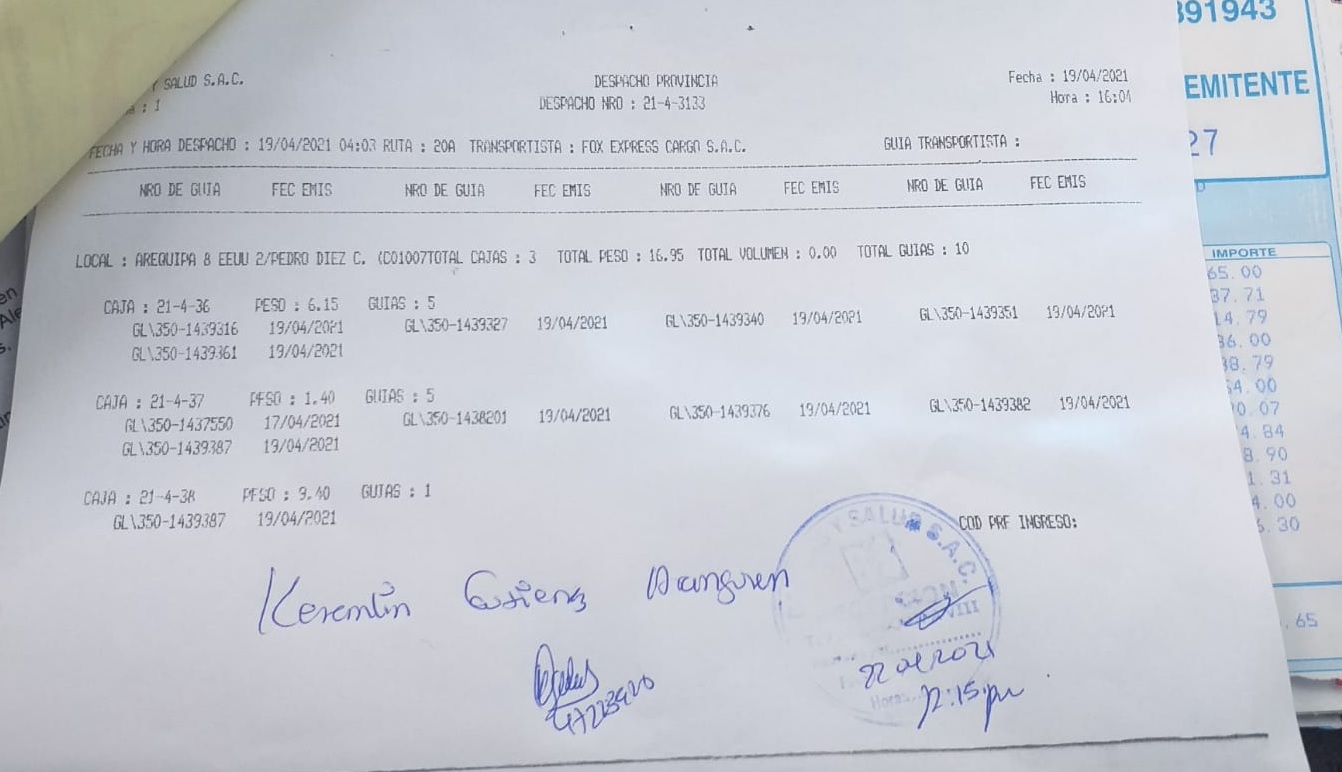 Y SALUD S.A.C. DESPACHO PROVINCIA Fecha : 19/04/2021
: 1 DESPACHO NRO : 21-4-3133 Hora : 16:04
FECHA Y HORA DESPACHO : 19/04/2021 04:03 RUTA : 20A TRANSPORTISTA : FOX EXPRESS CARGO S.A.C. GUIA TRANSPORTISTA :
NRO DE GUIA FEC EMIS NRO DE GUIA FEC EMIS NRO DE GUIA FEC EMIS NRO DE GUIA FEC EMIS
LOCAL : AREQUIPA 8 EEUU 2/PEDRO DIEZ C. (C01007TOTAL CAJAS : 3 TOTAL PESO : 16.95 TOTAL VOLUMEN : 0.00 TOTAL GUIAS : 10
CAJA : 21-4-36 PESO : 6.15 GUIAS : 5
GL\350-1439316 19/04/2021 GL\350-1439327 19/04/2021 GL\350-1439340 19/04/2021 GL\350-1439351 19/04/2021
GL\350-1439361 19/04/2021
CAJA : 21-4-37 PESO : 1.40 GUIAS : 5
GL\350-1437550 17/04/2021 GL\350-1438201 19/04/2021 GL\350-1439376 19/04/2021 GL\350-1439382 19/04/2021
GL\350-1439387 19/04/2021
CAJA : 21-4-38 PESO : 9.40 GUIAS : 1
GL\350-1439387 19/04/2021
COD PRF INGRESO:
Y SALUD S.A.C.
VIII
22 04 2021
Hora: 12:15 pm
47223920
391943
EMITENTE
27
IMPORTE
65.00
37.71
14.79
36.00
38.79
54.00
0.07
4.84
8.90
1.31
4.00
6.30
.65